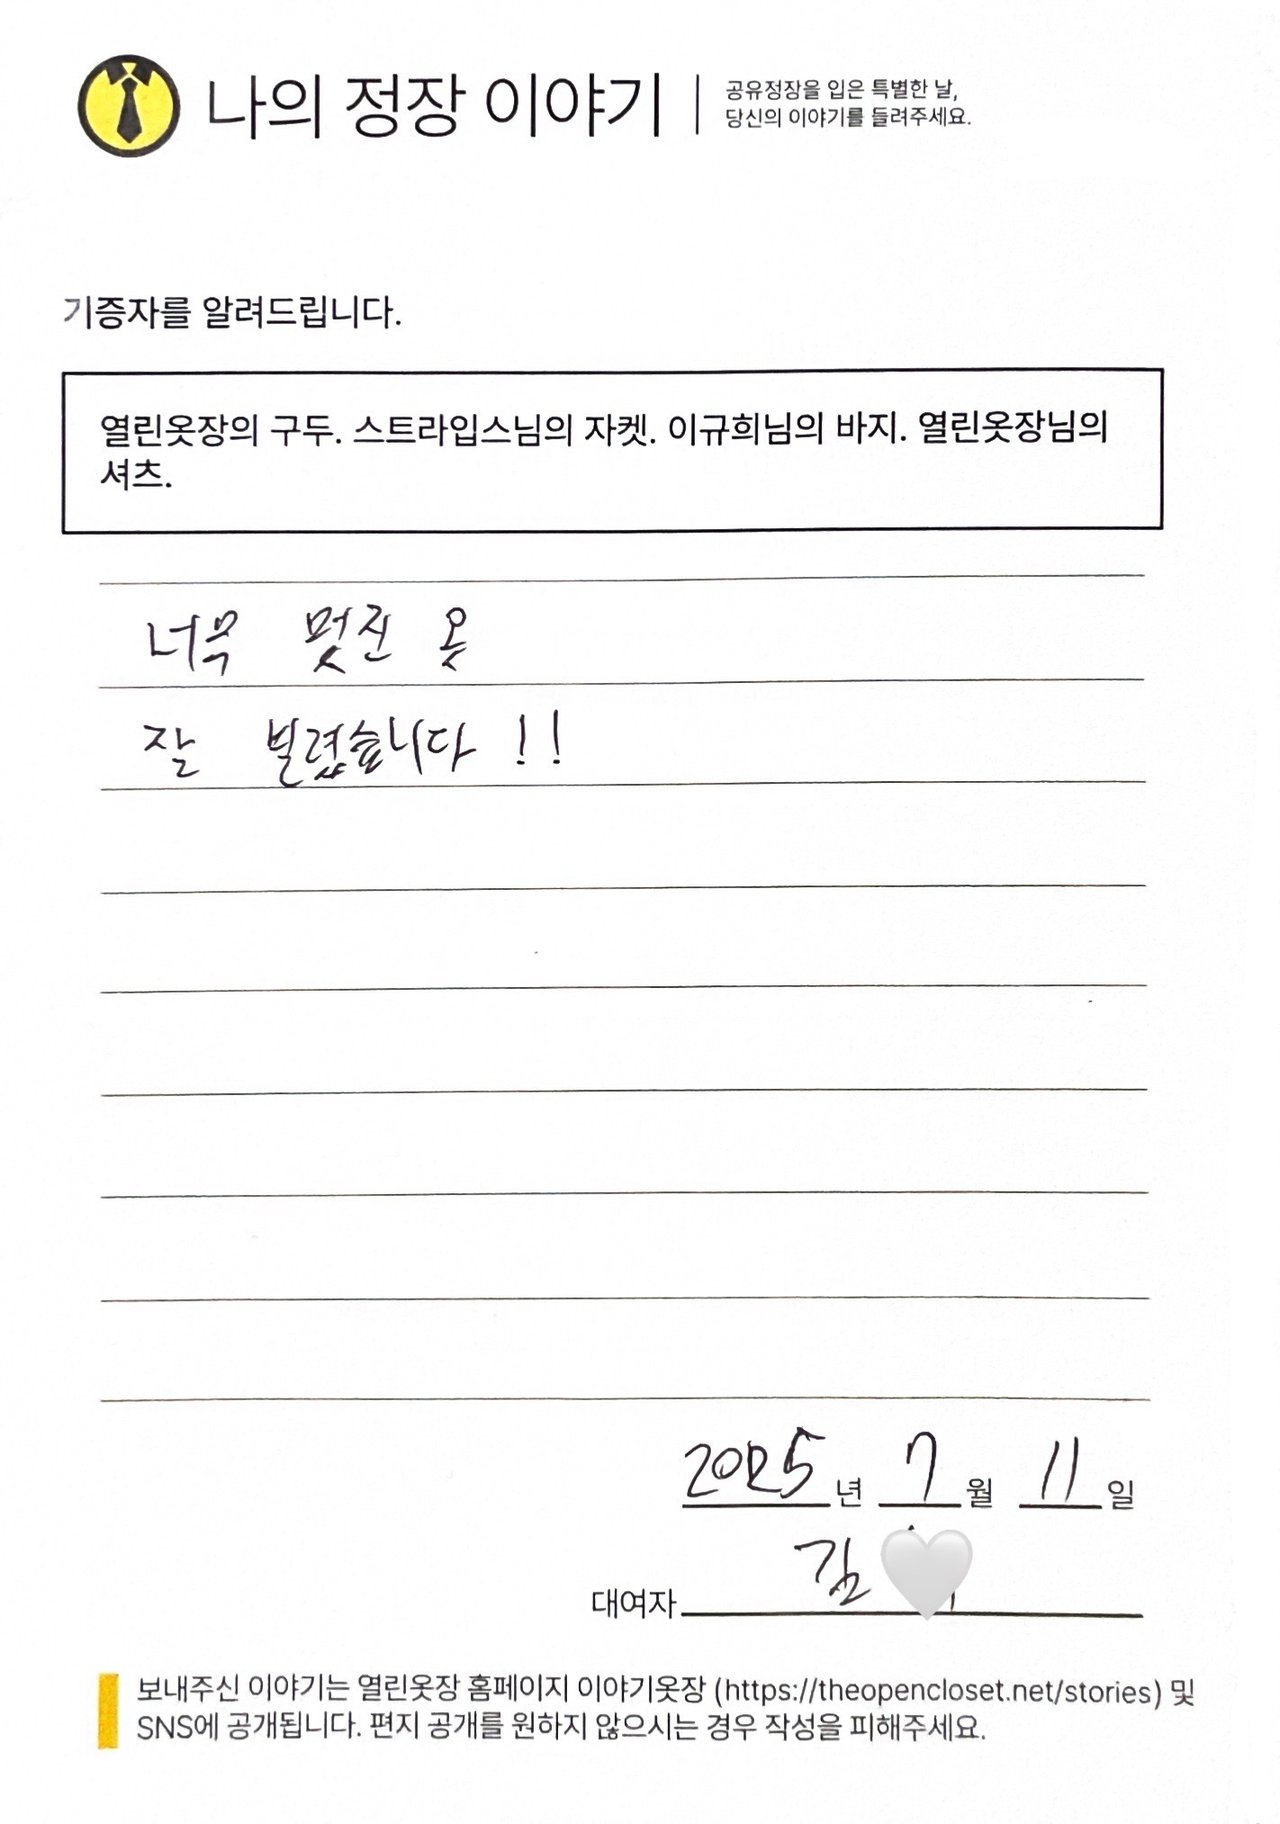 나의 정장 이야기
공유정장을 입은 특별한 날,
당신의 이야기를 들려주세요.
기증자를 알려드립니다.
열린옷장의 구두. 스트라입스님의 자켓. 이규희님의 바지. 열린옷장님의
셔츠.
너무 멋진 옷
잘 빌렸습니다 !!
2025년 7월 11일
대여자 김
보내주신 이야기는 열린옷장 홈페이지 이야기옷장 (https://theopencloset.net/stories) 및
SNS에 공개됩니다. 편지 공개를 원하지 않으시는 경우 작성을 피해주세요.